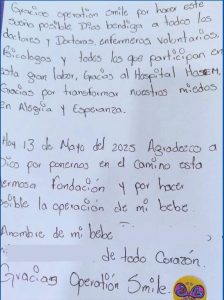 Gracias operation Smile por hacer este
Sueño posible Dios bendiga a todos los
doctores y Doctoras, enfermeras, voluntarios,
Psicologos y todos los que participan en
esta gran labor, Gracias al Hospital
Gracias por transformar nuestros miedos
en Alegria y Esperanza.
Hoy 13 de Mayo del 2025 Agradezco a
Dios por ponernos en el camino esta
ermosa fundación y por hacer
posible la operación de mi bebe
Anombre de mi bebe
de todo Corazón.
Gracias Operation Smile.